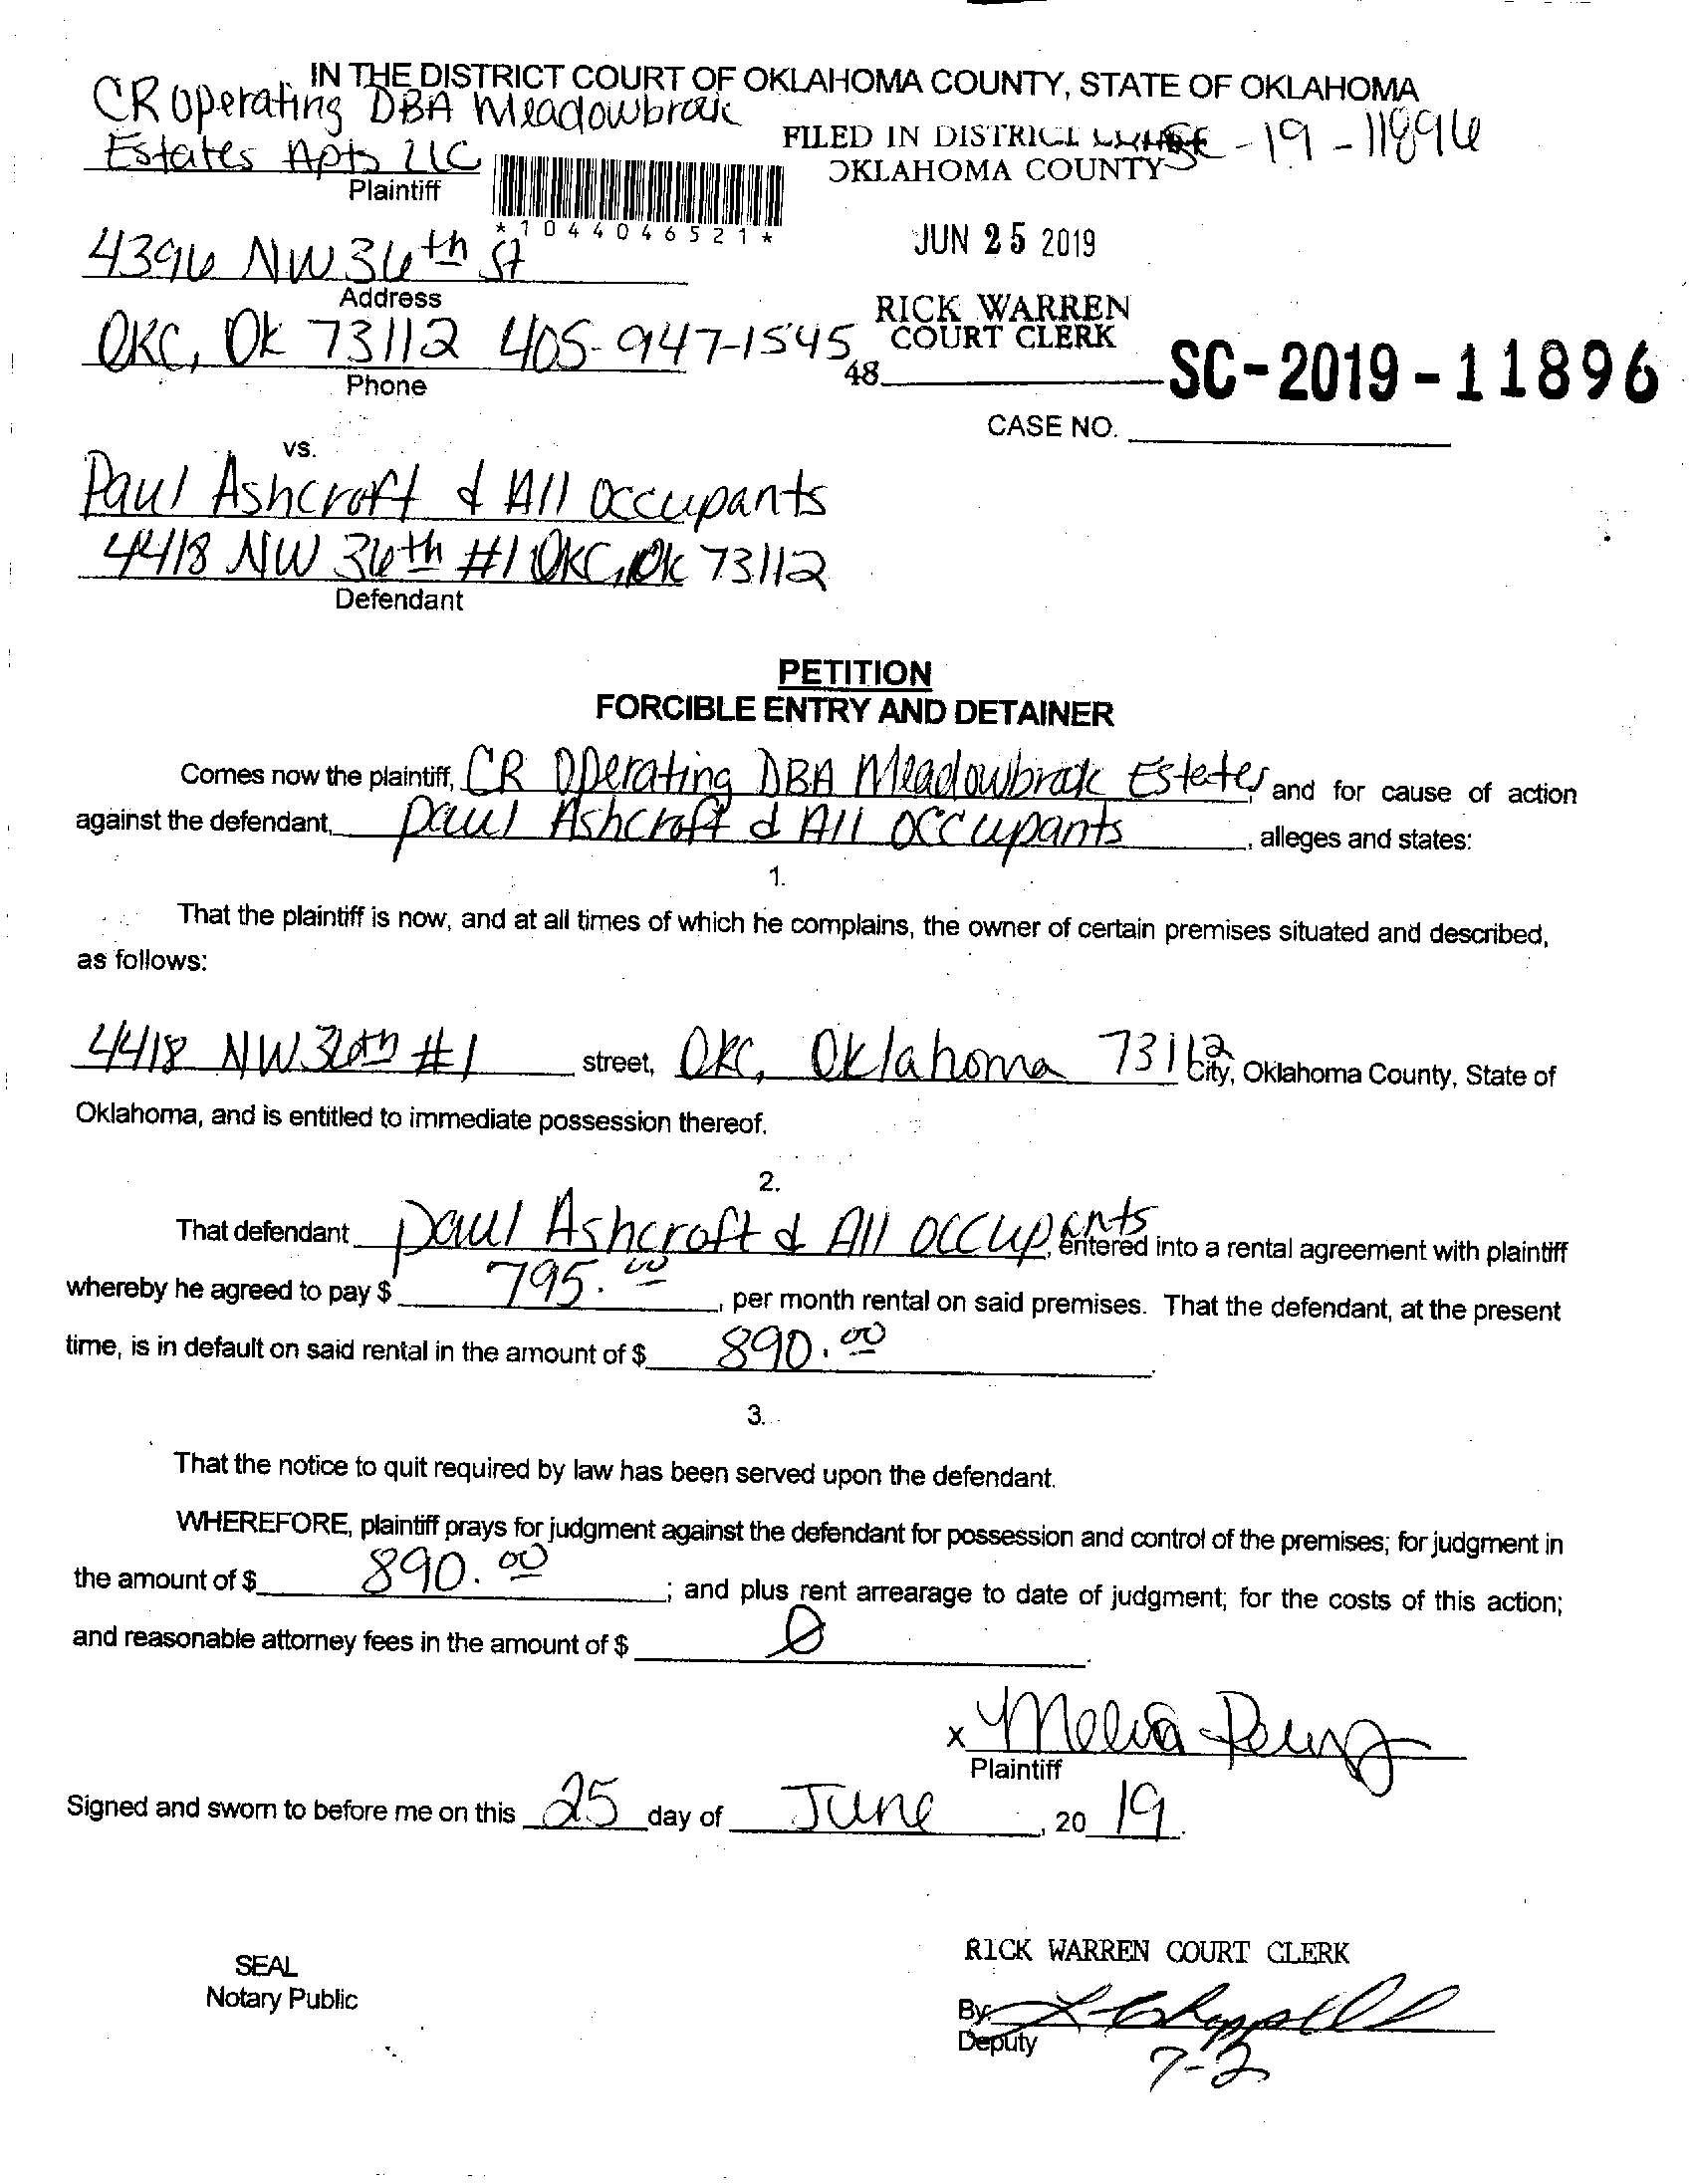 IN THE DISTRICT COURT OF OKLAHOMA COUNTY, STATE OF OKLAHOMA
CR Operating DBA Meadowbrook
Estates Apts LLC
Plaintiff
FILED IN DISTRICT
OKLAHOMA COUNTY
SC-19-11896
*1044046521*
JUN 25 2019
4396 NW 36th St
Address
RICK WARREN
COURT CLERK
OKC, OK 73112 405-947-1545
Phone
48.
SC-2019-11896
CASE NO.
vs.
Paul Ashcroft & All Occupants
4418 NW 36th #1 OKC, OK 73112
Defendant
PETITION
FORCIBLE ENTRY AND DETAINER
Comes now the plaintiff, CR Operating DBA Meadowbrook Estates, and for cause of action
against the defendant, Paul Ashcroft & All Occupants, alleges and states:
1.
That the plaintiff is now, and at all times of which he complains, the owner of certain premises situated and described,
as follows:
4418 NW 36th #1 street, OKC, Oklahoma 73112 City, Oklahoma County, State of
Oklahoma, and is entitled to immediate possession thereof.
2.
That defendant Paul Ashcroft & All Occupants, entered into a rental agreement with plaintiff
whereby he agreed to pay $ 795.00, per month rental on said premises. That the defendant, at the present
time, is in default on said rental in the amount of $ 890.00.
3.
That the notice to quit required by law has been served upon the defendant.
WHEREFORE, plaintiff prays for judgment against the defendant for possession and control of the premises; for judgment in
the amount of $ 890.00; and plus rent arrearage to date of judgment; for the costs of this action;
and reasonable attorney fees in the amount of $ 0.
x Melva Perez
Plaintiff
Signed and sworn to before me on this 25 day of June, 2019.
SEAL
Notary Public
RICK WARREN COURT CLERK
By:
Deputy
7-2